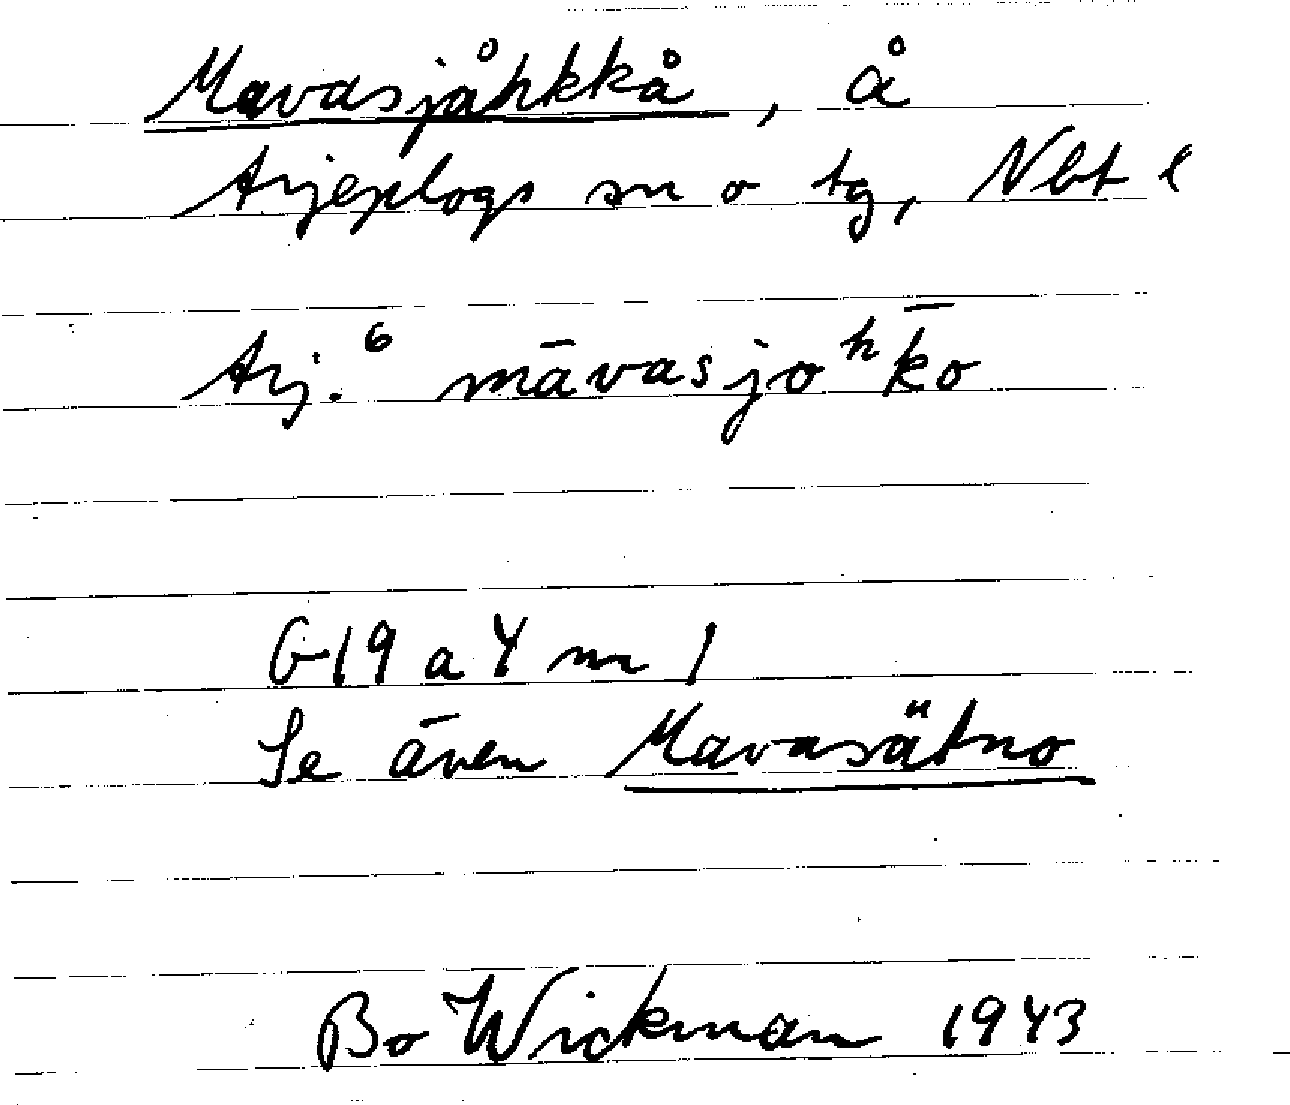 Mavasjåhkkå, å
Arjeplogs sn o tg, Nbt l
Arj.⁶ māvasjoʰk̄o
G19 a 4 m 1
Se även Mavasätno
Bo Wickman 1943